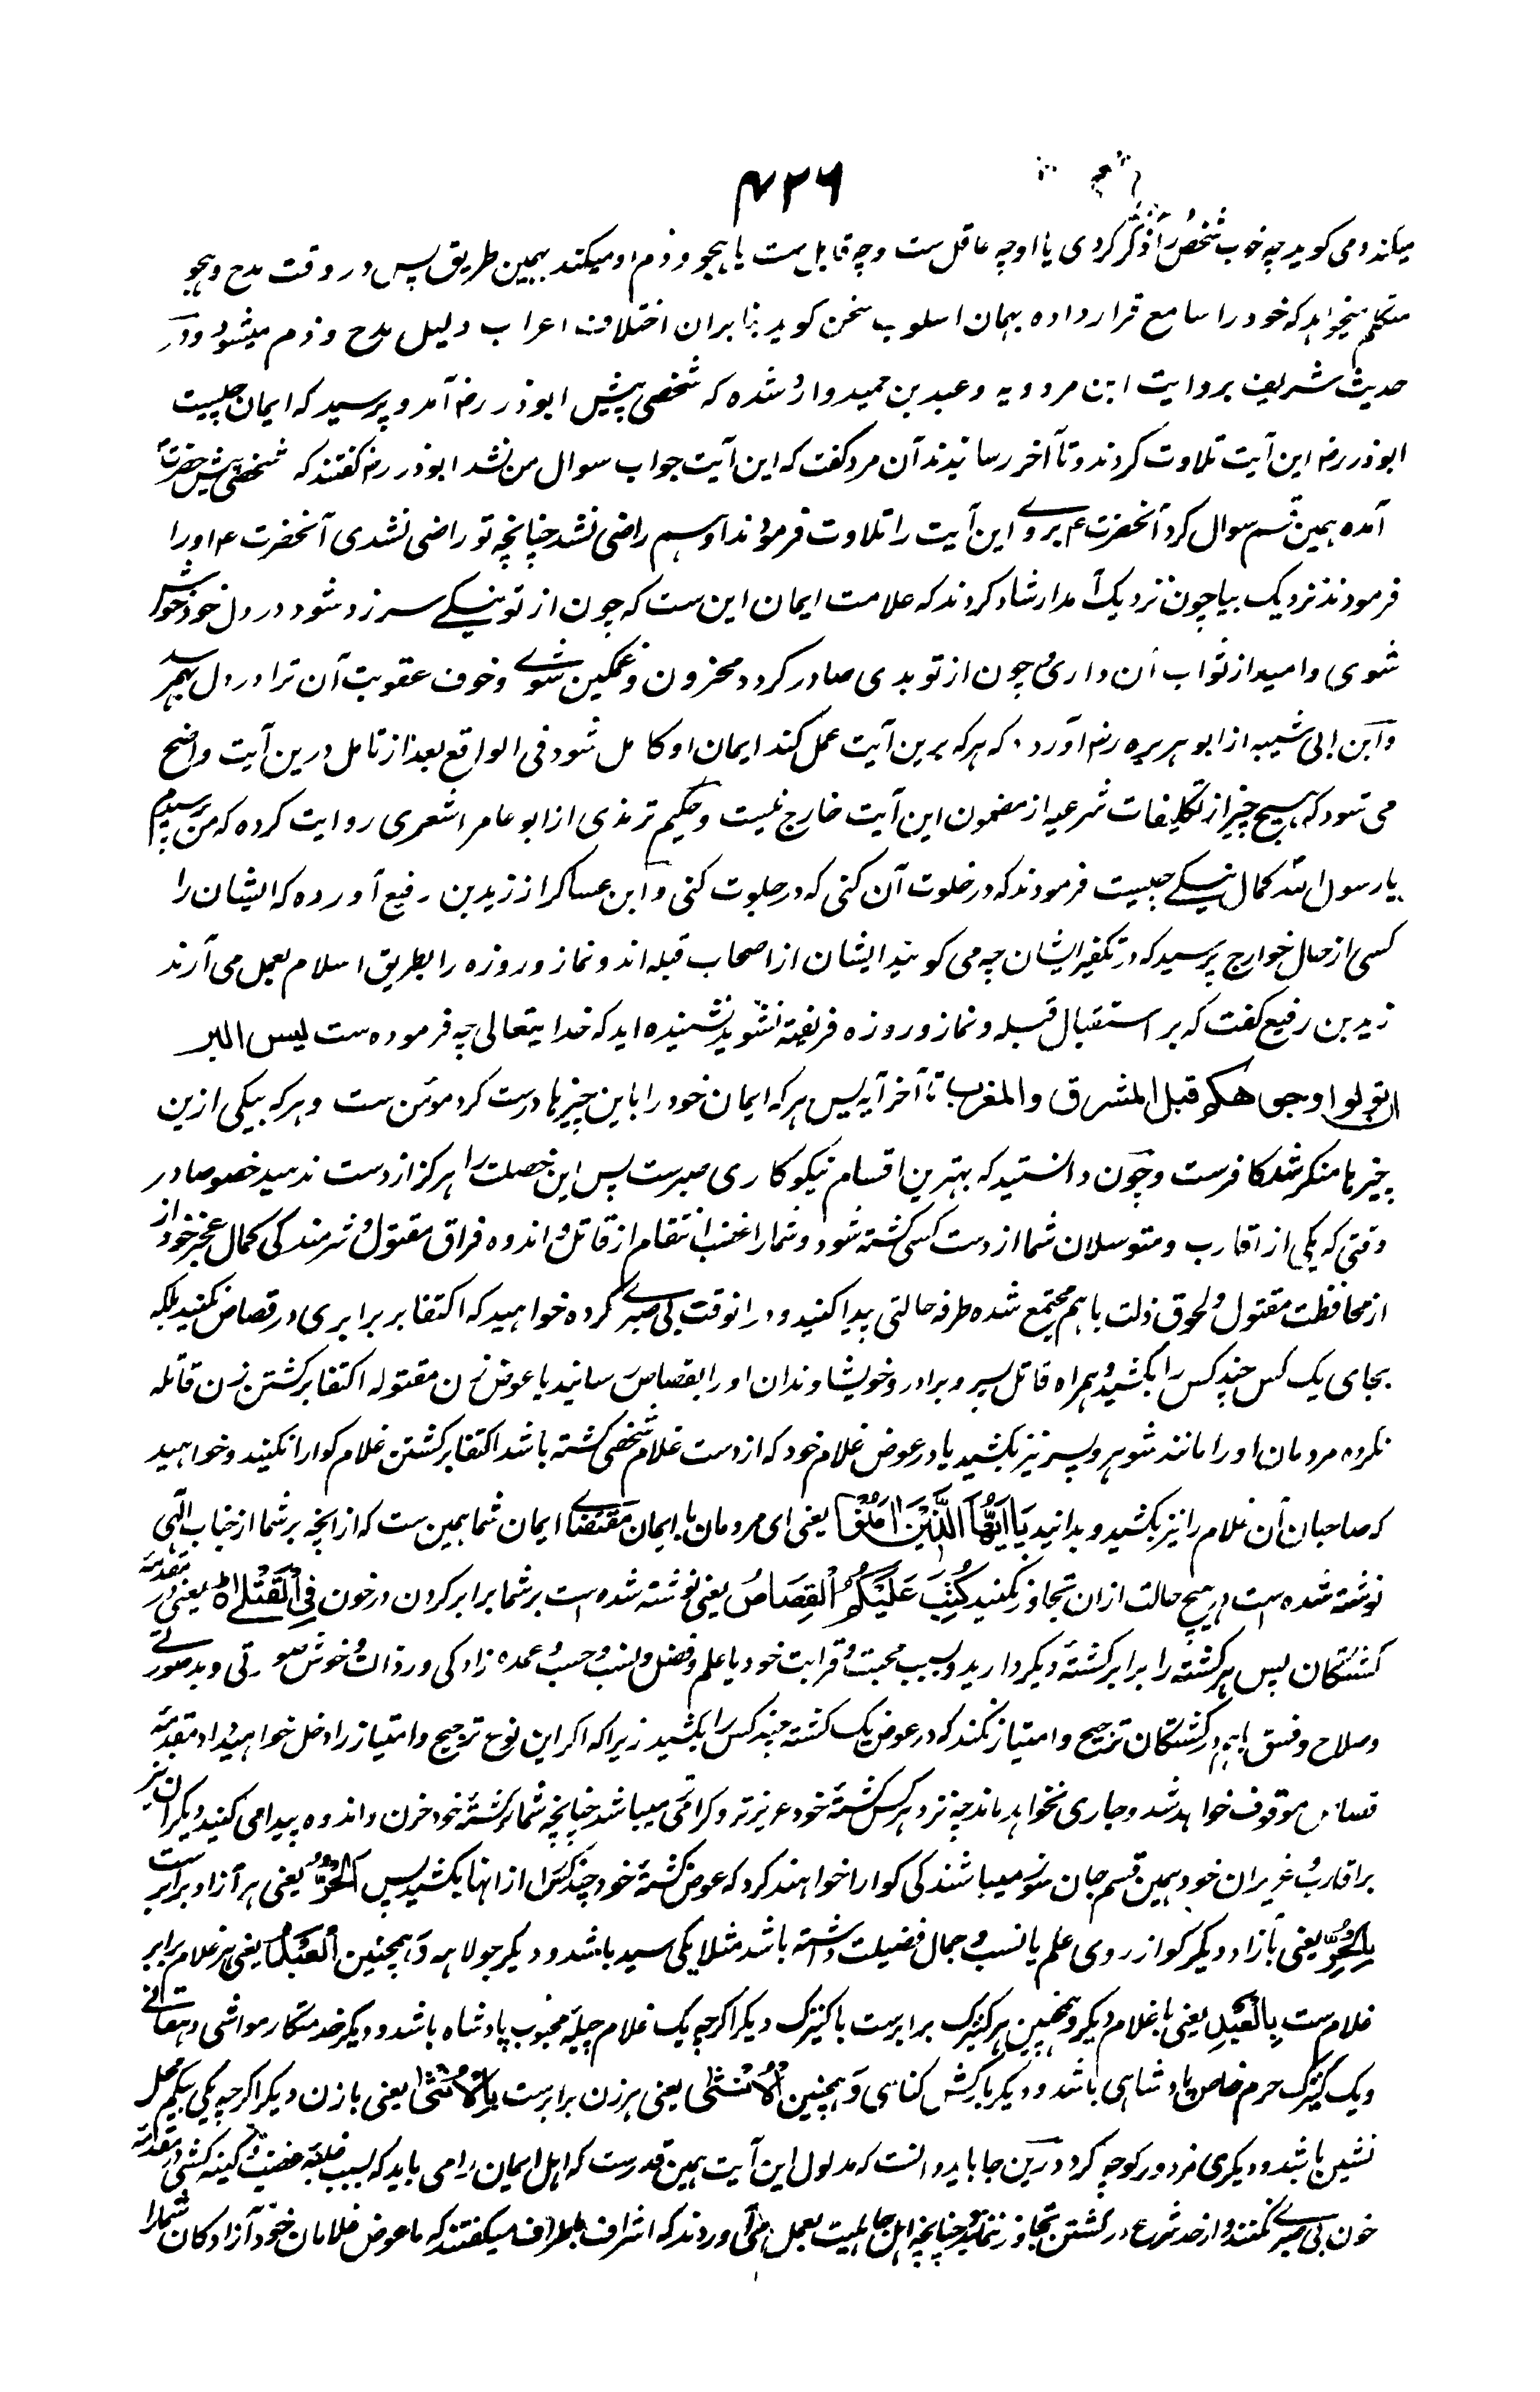 ۷۲۶
میکند و می کوید چه خوب شخص را ذکر کردی یا او چه عاقل ست و چه قابل ست یا هجو و ذم او میکند بهمین طریق پس در وقت مدح و هجو
متکلم میخواهد که خود را سامع قرار داده بهمان اسلوب سخن کوید بنابران اختلاف اعراب دلیل مدح و ذم میشود و در
حدیث شریف بروایت ابن مردویه و عبد بن حمید وارد شده که شخصی پیش ابوذر رض آمد و پرسید که ایمان چیست
ابوذر رض این آیت تلاوت کردند و تا آخر رسانیدند آن مرد کفت که این آیت جواب سوال من نشد ابوذر رض کفتند که شخصی پیش حضرت
آمده همین قسم سوال کرد آنحضرت ع بروے این آیت را تلاوت فرمودند او هم راضی نشد چنانچه تو راضی نشدی آنحضرت ع اورا
فرمودند نزدیک بیا چون نزدیک آمد ارشاد کردند که علامت ایمان این ست که چون از تو نیکے سرزد شود در دل خود خوش
شوی و امید از ثواب آن داری و چون از تو بدی صادر کردد محزون و غمکین شوے و خوف عقوبت آن ترا در دل بهم رسد
و ابن ابی شیبه از ابو هریره رض آورده که هر که برین آیت عمل کند ایمان او کامل شود فی الواقع بعد از تامل درین آیت واضح
می شود که هیچ چیز از تکلیفات شرعیه از مضمون این آیت خارج نیست و حکیم ترمذی از ابو عامر اشعری روایت کرده که من پرسیدم
یا رسول الله کمال نیکے چیست فرمودند که در خلوت آن کنی که در جلوت کنی و ابن عساکر از زید بن رفیع آورده که ایشان را
کسی از حال خوارج پرسید که در تکفیر ایشان چه می کوئید ایشان از اصحاب قبله اند و نماز و روزه را بطریق اسلام بعمل می آرند
زید بن رفیع کفت که بر استقبال قبله و نماز و روزه فریفته نشوید نشنیده اید که خدا یتعالی چه فرموده ست لیس البر
ان تولوا وجوهکم قبل المشرق والمغرب تا آخر آیه پس هر که ایمان خود را باین چیزها درست کرد مؤمن ست و هر که بیکی ازین
چیزها منکر شد کافرست و چون دانستید که بهترین اقسام نیکوکاری صبرست پس این خصلت را هرکز از دست ندهید خصوصا در
وقتی که یکی از اقارب و متوسلان شما از دست کسی کشته شود و شما را غضب انتقام از قاتل و اندوه فراق مقتول و شرمندکی کمال عجز خود از
از محافظت مقتول و لحوق ذلت باهم مجتمع شده طرفه حالتی پیدا کنید و درانوقت بی صبرے کرده خواهید که اکتفا بر برابری در قصاص نکنید بلکه
بجای یک کس چند کس را بکشید و همراه قاتل پسر و برادر و خویشاوندان او را بقصاص رسانید یا عوض زن مقتوله اکتفا بر کشتن زن قاتله
نکرده مردمان او را مانند شوهر و پسر نیز بکشید یا در عوض غلام خود که از دست غلام شخصی کشته باشد اکتفا بر کشتن غلام کوارا نکنید و خواهید
که صاحبان آن غلام را نیز بکشید و بدانید یَا اَیُّهَا الَّذِیْنَ اٰمَنُوْا یعنی ای مردمان با ایمان مقتضاے ایمان شما همین ست که از انچه بر شما از جناب الهی
نوشته شده است در هیچ حالت ازان تجاوز نکنید کُتِبَ عَلَیْکُمُ الْقِصَاصُ یعنی نوشته شده است بر شما برابر کردن در خون فِی الْقَتْلٰی یعنی در مقدمه
کشتکان پس هر کشته را برابر کشته دیکر دارید و بسبب محبت و قرابت خود یا علم و فضل و نسب و حسب و عمده زادکی و رذالت و خوش صورتی و بدصورتے
و صلاح و فسق باهم در کشتکان ترجیح و امتیاز نکنید که در عوض یک کشته چند کس را بکشید زیرا که اکر این نوع ترجیح و امتیاز را دخل خواهید داد مقدمه
قصاص موقوف خواهد شد و جاری نخواهد ماند چه نزد هر کس کشتۀ خود عزیزتر و کرامی میباشد چنانچه شما بر کشتۀ خود حزن و اندوه پیدا می کنید دیکران نیز
بر اقارب و عزیزان خود همین قسم جان سوز میباشند کی کوارا خواهند کرد که عوض کشتۀ خود چند کس از انها بکشید پس اَلْحُرُّ یعنی هر آزاد برابر ست
بِالْحُرِّ یعنی بآزاد دیکر کو از روی علم یا نسب و جمال فضیلت داشته باشد مثلا یکی سید باشد و دیکر جولاهه و همچنین اَلْعَبْدُ یعنی هر غلام برابر
غلام ست بِالْعَبْدِ یعنی با غلام دیکر و همچنین هر کنیزک برابرست با کنیزک دیکر اکرچه یک غلام چیلۀ محبوب پادشاه باشد و دیکر خدمتکار مواشی دهقانے
و یک کنیزک حرم خاص پادشاهی باشد و دیکر جاروب کش کناسی و همچنین اَلْاُنْثٰی یعنی هر زن برابرست بِالْاُنْثٰی یعنی با زن دیکر اکرچه یکی بیکم محل
نشین باشد و دیکری مزدور کوچه کرد درین جا باید دانست که مدلول این آیت همین قدرست که اهل ایمان را می باید که بسبب غلبه غضب و کینه کشی در مقدمه
خون بی صبرے نکنند و از حد شرع در کشتن تجاوز ننمایند چنانچه اهل جاهلیت بعمل می آوردند که اشراف باطراف میکفتند که ما عوض غلامان خود آزادکان شما را